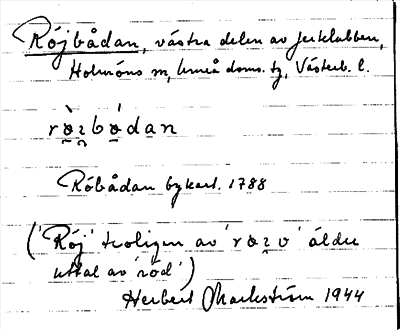 Röjbådan, västra delen av Jerklubben,
Holmöns sn, Umeå doms. tg, Västerb. l.
rö̀ɪbó̱dan
Röbådan bykart. 1788
('Röj' troligen av 'röɪv' äldre
uttal av 'röd')
Herbert Markström 1944